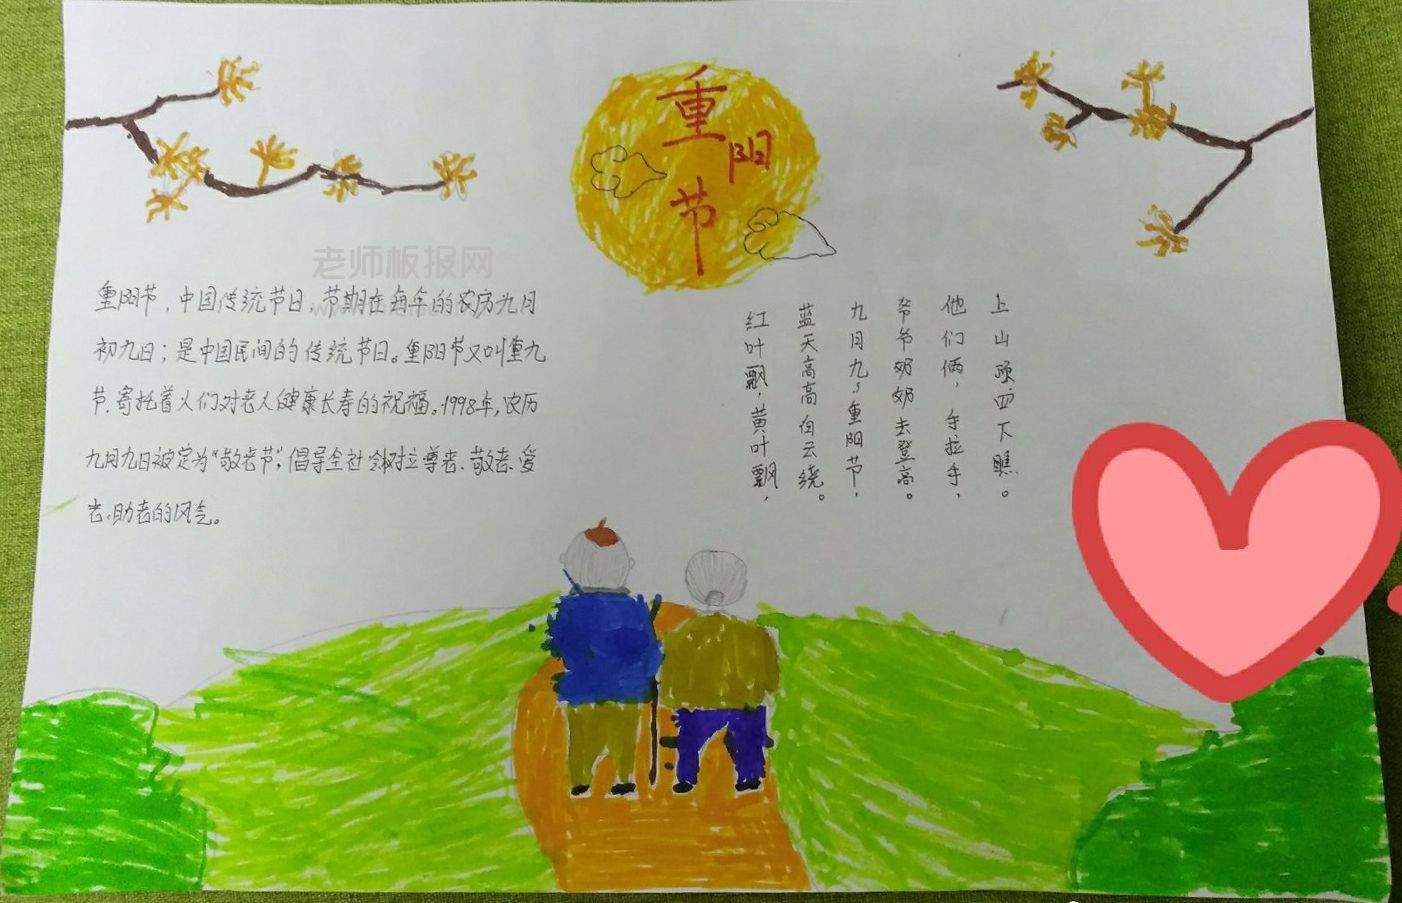 重
阳
节
老师板报网
重阳节,中国传统节日,节期在每年的农历九月
初九日;是中国民间的传统节日。重阳节又叫重九
节.寄托着人们对老人健康长寿的祝福。1998年,农历
九月九日被定为“敬老节”,倡导全社会树立尊老、敬老、爱
老、助老的风气。
红叶飘,黄叶飘,
蓝天高高白云绕。
九月九,重阳节,
爷爷奶奶去登高。
他们俩,手拉手,
上山顶,四下瞧。